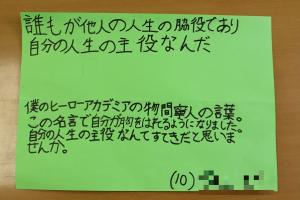 誰もが他人の人生の脇役であり
自分の人生の主役なんだ
僕のヒーローアカデミアの物間寧人の言葉。
この名言で自分が胸をはれるようになりました。
自分の人生の主役なんてすてきだと思いま
せんか。
(10)